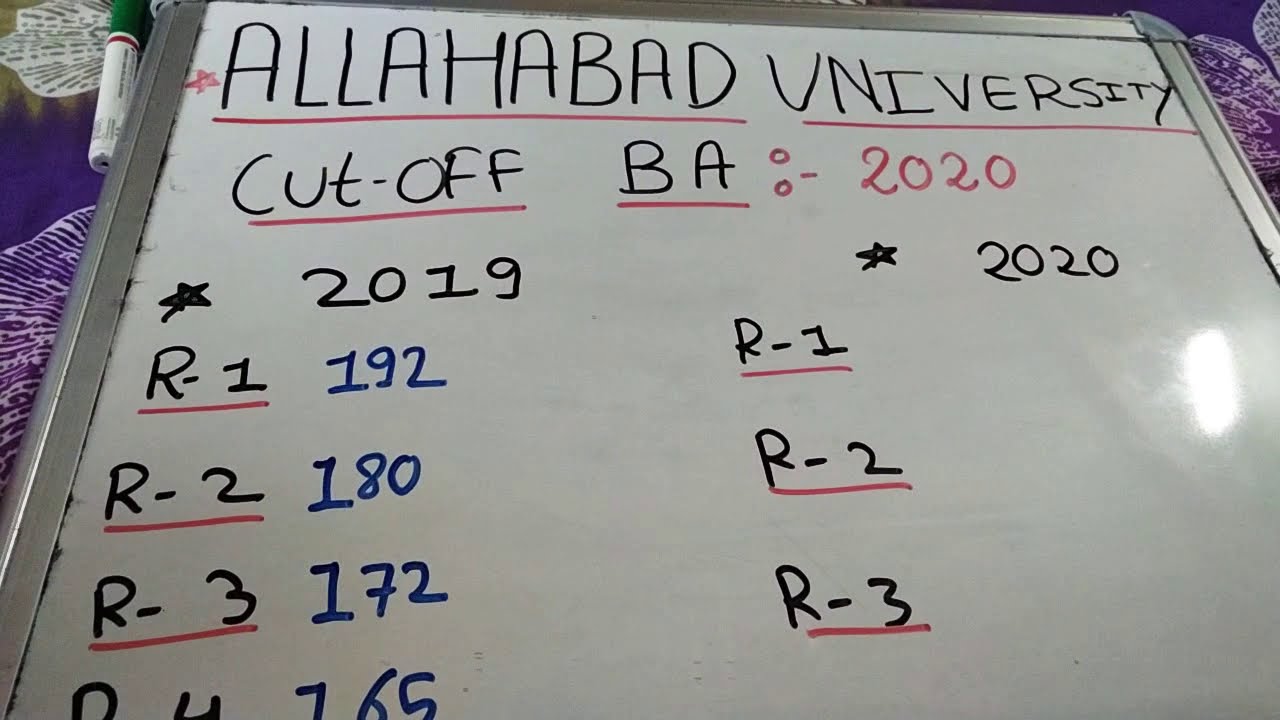 ★ ALLAHABAD UNIVERSITY
CUt-OFF BA :- 2020
★ 2019
R-1 192
R-2 180
R-3 172
R-4 165
★ 2020
R-1
R-2
R-3